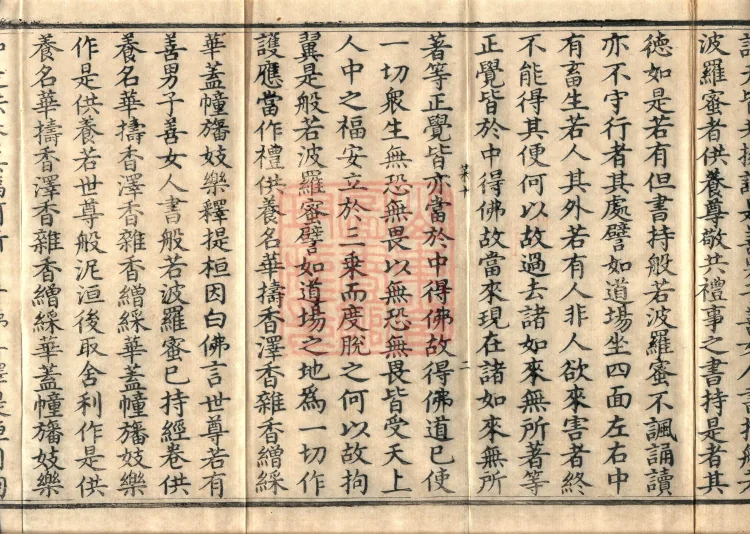 波羅蜜者供養尊敬共禮事之書持是者其
德如是若有但書持般若波羅蜜不諷誦讀
亦不守行者其處譬如道場坐四面左右中
有畜生若人其外若有人非人欲來害者終
不能得其便何以故過去諸如來無所著等
正覺皆於中得佛故當來現在諸如來無所
菜十 二
著等正覺皆亦當於中得佛故得佛道已使
一切衆生無恐無畏以無恐無畏皆受天上
人中之福安立於三乘而度脫之何以故拘
翼是般若波羅蜜譬如道場之地爲一切作
護應當作禮供養名華擣香澤香雜香繒綵
華蓋幢旛妓樂釋提桓因白佛言世尊若有
善男子善女人書般若波羅蜜已持經卷供
養名華擣香澤香雜香繒綵華蓋幢旛妓樂
作是供養若世尊般泥洹後取舍利作是供
養名華擣香澤香雜香繒綵華蓋幢旛妓樂